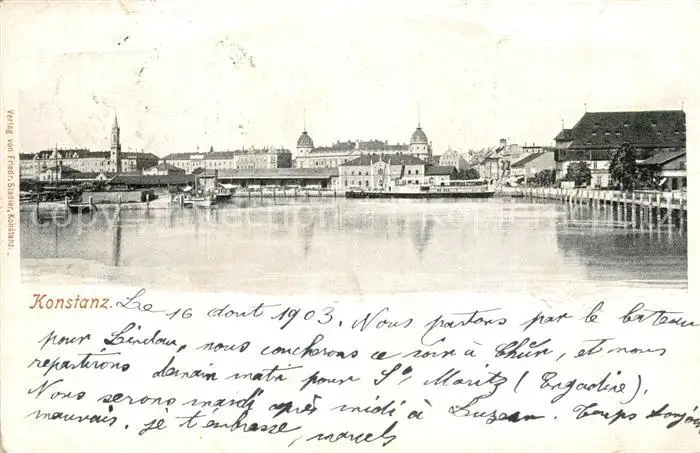 Verlag von Friedr. Stadler, Konstanz.
Konstanz. Le 16 Aout 1903. Nous partons par le bateau
pour Lindau, nous coucherons ce soir à Chür, et nous
repartirons demain matin pour St. Moritz (Engadine).
Nous serons mardi après midi à Luzern. Temps toujours
mauvais. je t'embrasse, marcel